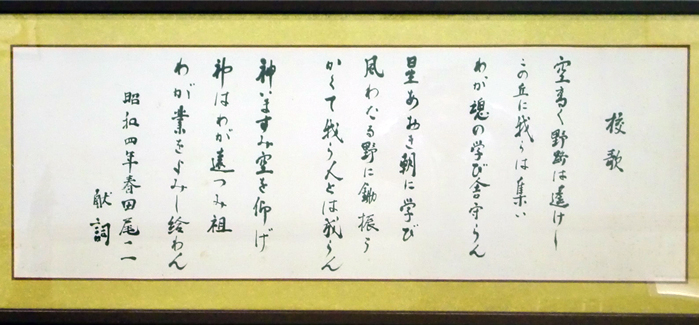 校歌
空高く野路は遥けし
この丘に我らは集い
わが魂の学び舎守らん
星あおき朝に学び
風わたる野に鋤振う
かくて我ら人とは成らん
神いますみ空を仰げ
神はわが遠つみ祖
わが業をよみし給わん
昭和四年春田尾一一
献詞